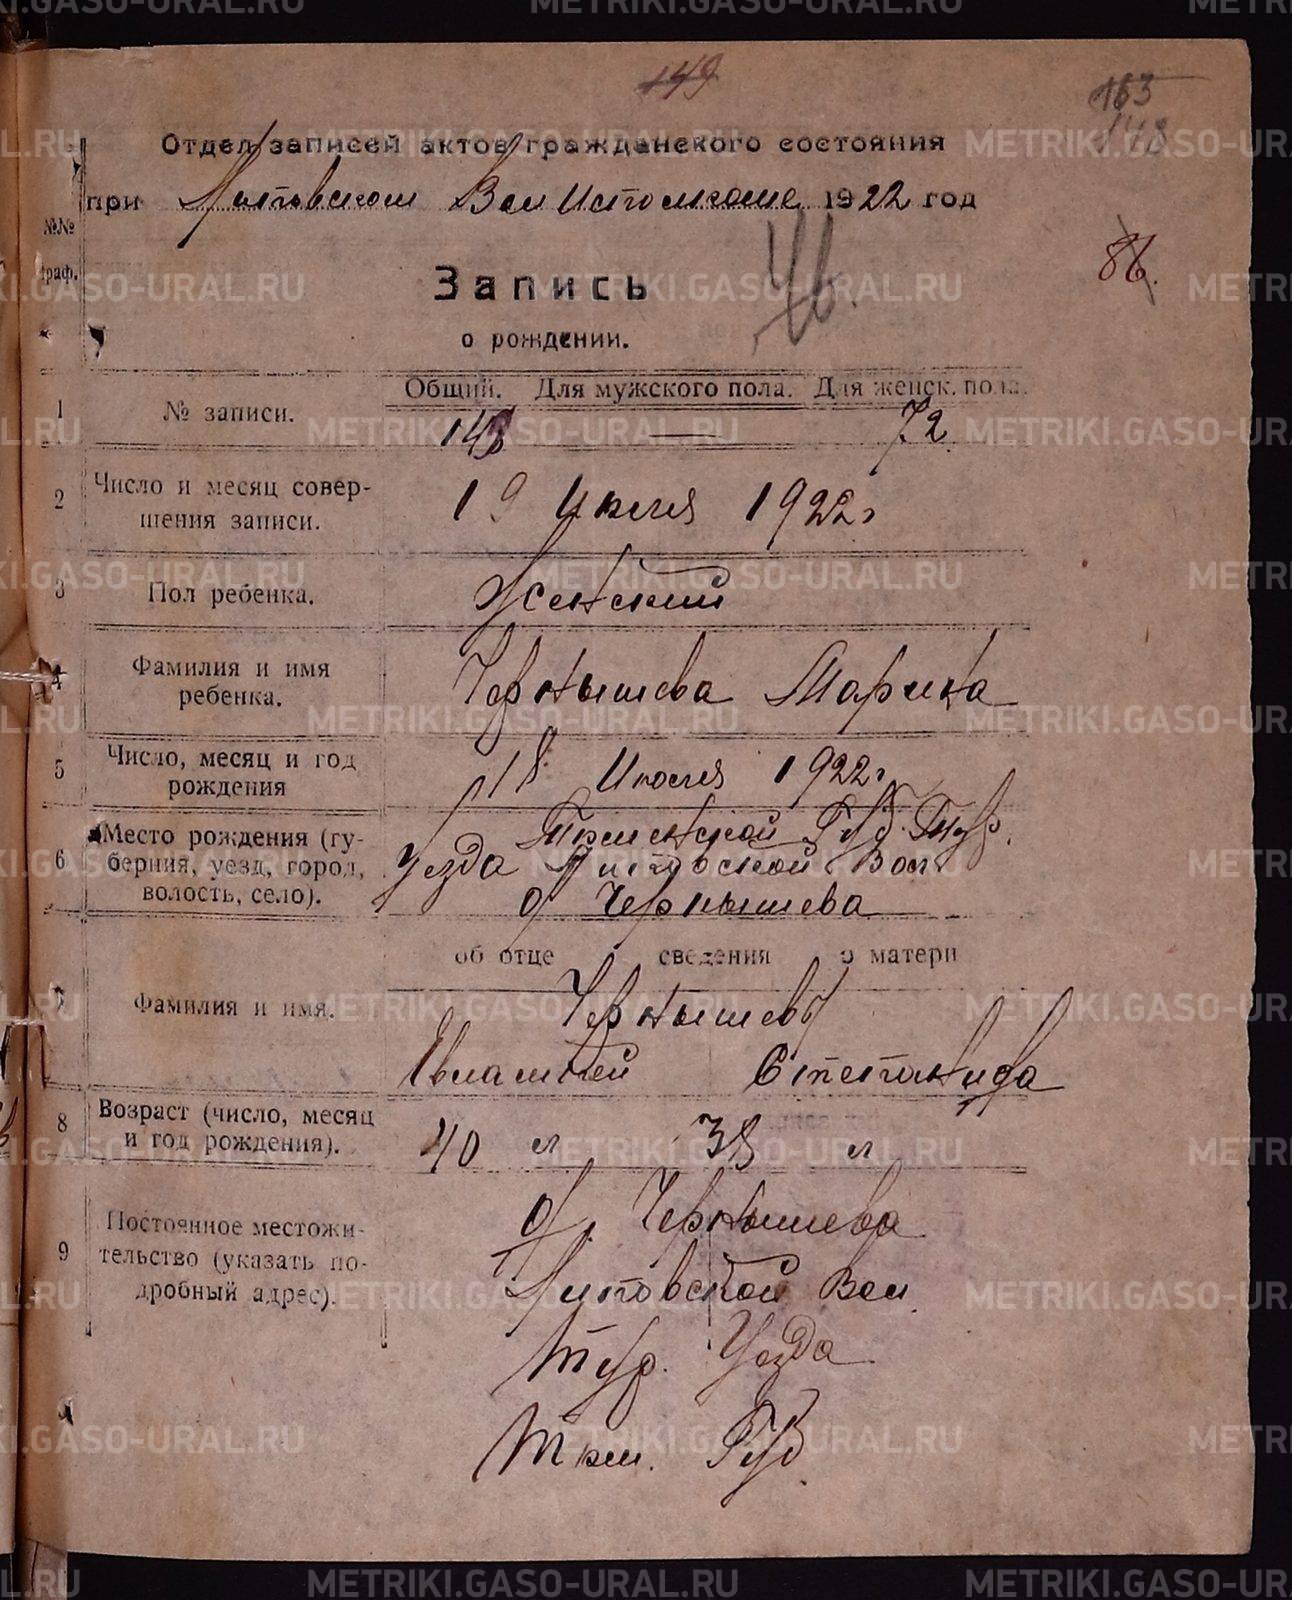 149
163
148
Отдел записей актов гражданского состояния
при Липовском Волисполкоме 1922 год
№№ граф.
86.
Запись
46.
о рождении.
Общий. Для мужского пола. Для женск. пола.
1 № записи. 148 — 72
2 Число и месяц совер-
шения записи. 19 Июля 1922 г
3 Пол ребенка. Женский
4 Фамилия и имя
ребенка. Чернышева Марина
5 Число, месяц и год
рождения 18 Июля 1922 г
6 Место рождения (гу-
берния, уезд, город,
волость, село).
Тюменской Губ. Тур.
Уезда Липовской Вол
д Чернышева
об отце сведения о матери
7 Фамилия и имя.
Чернышевы
Евлампей Степанида
8 Возраст (число, месяц
и год рождения). 40 л 38 л
9 Постоянное местожи-
тельство (указать по-
дробный адрес).
д. Чернышева
Липовской Вол
Тур. Уезда
Тюм. Губ.
METRIKI.GASO-URAL.RU